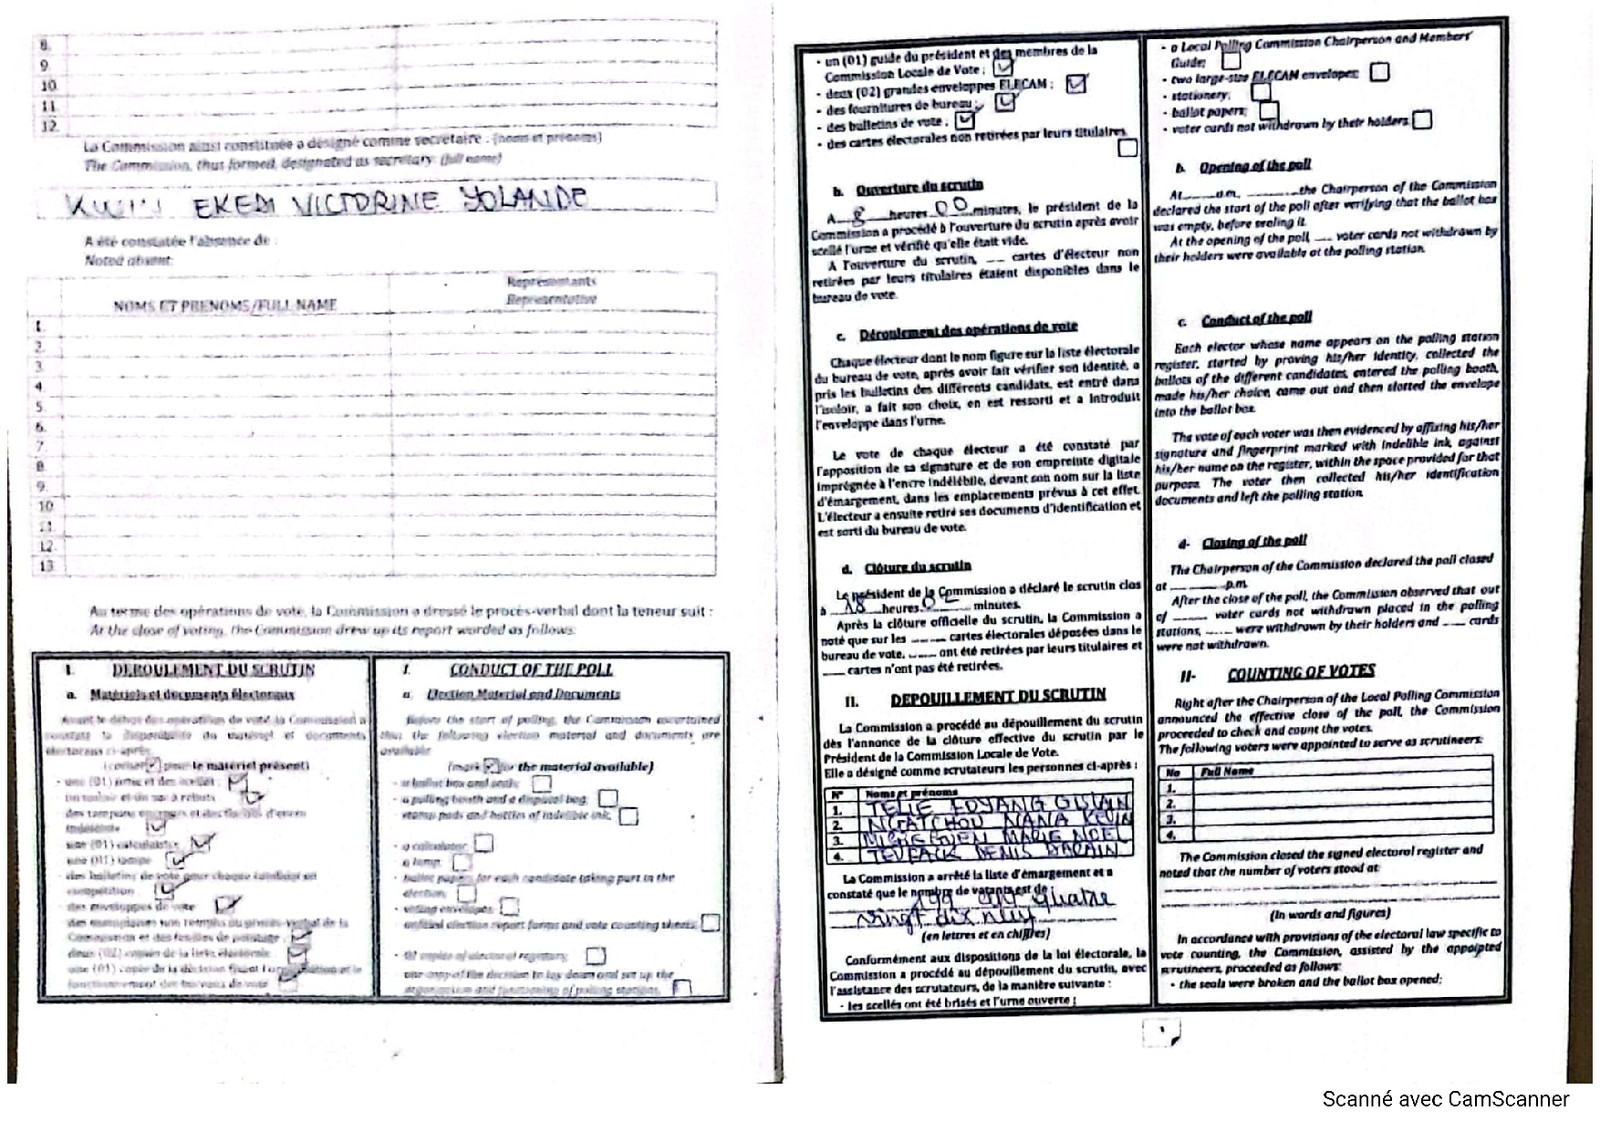 8.
9.
10.
11.
12.
La Commission ainsi constituée a désigné comme secrétaire : (noms et prénoms)
The Commission, thus formed, designated as secretary: (full name)
EKEDI VICTORINE YOLANDE
A été constatée l'absence de :
Noted absent:
NOMS ET PRENOMS/FULL NAME
Représentants
Representative
1.
2.
3.
4.
5.
6.
7.
8.
9.
10
11.
12.
13.
Au terme des opérations de vote, la Commission a dressé le procès-verbal dont la teneur suit :
At the close of voting, the Commission drew up its report worded as follows:
I. DEROULEMENT DU SCRUTIN
a. Matériels et documents électoraux
Avant le début des opérations de vote la Commission a
constaté la disponibilité du matériel et documents
électoraux ci-après
(cocher pour le matériel présent)
- une (01) urne et des scellés ;
un isoloir et un sac à rebuts
des tampons encreurs et des flacons d'encre
indélébile
une (01) calculatrice
une (01) lampe
- des bulletins de vote pour chaque candidat en
compétition
des enveloppes de vote
des exemplaires non remplis du procès-verbal de la
Commission et des feuilles de pointage
deux (02) copies de la liste électorale
une (01) copie de la décision fixant l'organisation et le
fonctionnement des bureaux de vote
I. CONDUCT OF THE POLL
a. Election Material and Documents
Before the start of polling, the Commission ascertained
that the following election material and documents are
available
(mark for the material available)
- a ballot box and seals;
- a polling booth and a disposal bag;
- stamp pads and bottles of indelible ink;
- a calculator
- a lamp
- ballot papers for each candidate taking part in the
election;
- voting envelopes
- unfilled election report forms and vote counting sheets;
- 02 copies of electoral registers;
- one copy of the decision to lay down and set up the
organization and functioning of polling stations;
- un (01) guide du président et des membres de la
Commission Locale de Vote ;
- deux (02) grandes enveloppes ELECAM ;
- des fournitures de bureau ;
- des bulletins de vote ;
- des cartes électorales non retirées par leurs titulaires
b. Ouverture du scrutin
A 8 heures 00 minutes, le président de la
Commission a procédé à l'ouverture du scrutin après avoir
scellé l'urne et vérifié qu'elle était vide.
A l'ouverture du scrutin, ___ cartes d'électeur non
retirées par leurs titulaires étaient disponibles dans le
bureau de vote.
c. Déroulement des opérations de vote
Chaque électeur dont le nom figure sur la liste électorale
du bureau de vote, après avoir fait vérifier son identité, a
pris les bulletins des différents candidats, est entré dans
l'isoloir, a fait son choix, en est ressorti et a introduit
l'enveloppe dans l'urne.
Le vote de chaque électeur a été constaté par
l'apposition de sa signature et de son empreinte digitale
imprégnée à l'encre indélébile, devant son nom sur la liste
d'émargement, dans les emplacements prévus à cet effet.
L'électeur a ensuite retiré ses documents d'identification et
est sorti du bureau de vote.
d. Clôture du scrutin
Le président de la Commission a déclaré le scrutin clos
à 18 heures minutes.
Après la clôture officielle du scrutin, la Commission a
noté que sur les ______ cartes électorales déposées dans le
bureau de vote, ______ ont été retirées par leurs titulaires et
____ cartes n'ont pas été retirées.
II. DEPOUILLEMENT DU SCRUTIN
La Commission a procédé au dépouillement du scrutin
dès l'annonce de la clôture effective du scrutin par le
Président de la Commission Locale de Vote.
Elle a désigné comme scrutateurs les personnes ci-après :
N° Noms et prénoms
1. FOYANG
2. NGATCHOU NANA KEVIN
3. MARIE NOEL
4. DENIS
La Commission a arrêté la liste d'émargement et a
constaté que le nombre de votants est de
199 cent quatre
vingt dix neuf
(en lettres et en chiffres)
Conformément aux dispositions de la loi électorale, la
Commission a procédé au dépouillement du scrutin, avec
l'assistance des scrutateurs, de la manière suivante :
- les scellés ont été brisés et l'urne ouverte ;
- a Local Polling Commission Chairperson and Members'
Guide;
- two large-size ELECAM envelopes;
- stationery;
- ballot papers;
- voter cards not withdrawn by their holders
b. Opening of the poll
At ______ a.m, ________ the Chairperson of the Commission
declared the start of the poll after verifying that the ballot box
was empty, before sealing it.
At the opening of the poll, ___ voter cards not withdrawn by
their holders were available at the polling station.
c. Conduct of the poll
Each elector whose name appears on the polling station
register, started by proving his/her identity, collected the
ballots of the different candidates, entered the polling booth,
made his/her choice, came out and then slotted the envelope
into the ballot box.
The vote of each voter was then evidenced by affixing his/her
signature and fingerprint marked with indelible ink, against
his/her name on the register, within the space provided for that
purpose. The voter then collected his/her identification
documents and left the polling station.
d- Closing of the poll
The Chairperson of the Commission declared the poll closed
at __________p.m.
After the close of the poll, the Commission observed that out
of ______ voter cards not withdrawn placed in the polling
stations, _____ were withdrawn by their holders and ____ cards
were not withdrawn.
II- COUNTING OF VOTES
Right after the Chairperson of the Local Polling Commission
announced the effective close of the poll, the Commission
proceeded to check and count the votes.
The following voters were appointed to serve as scrutineers:
No Full Name
1.
2.
3.
4.
The Commission closed the signed electoral register and
noted that the number of voters stood at:
(In words and figures)
In accordance with provisions of the electoral law specific to
vote counting, the Commission, assisted by the appointed
scrutineers, proceeded as follows:
- the seals were broken and the ballot box opened;
Scanné avec CamScanner